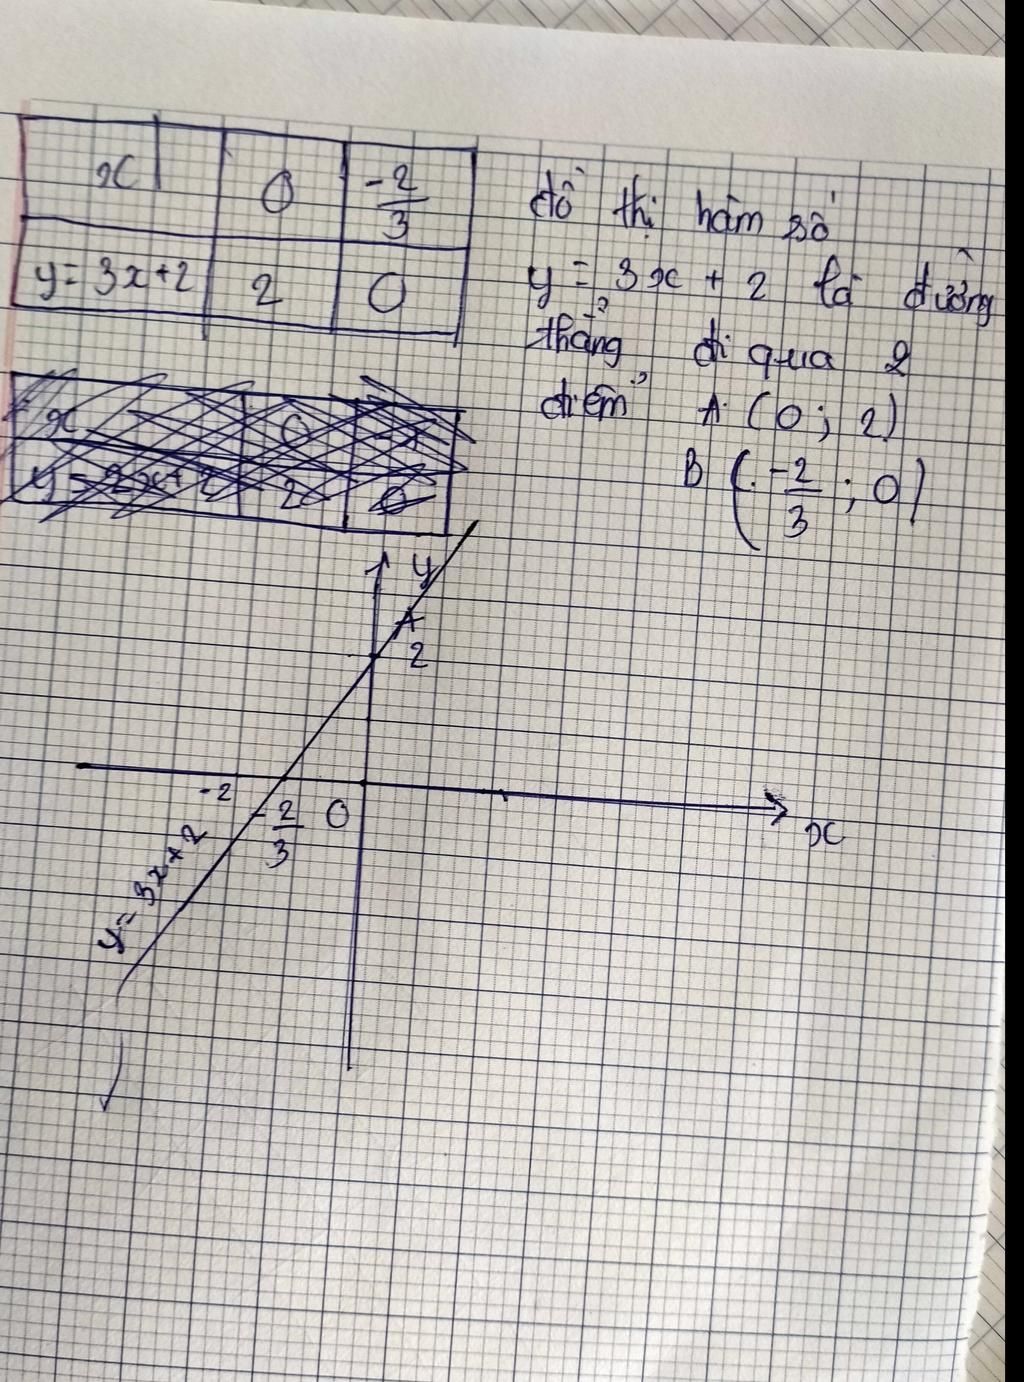 x 0 -2/3
y = 3x+2 2 0
đồ thị hàm số
y = 3x + 2 là đường
thẳng đi qua 2
điểm A (0; 2)
B (-2/3; 0)
x 0
y = 2x+2 2 0
y
A
2
-2
-2/3 0
x
y = 3x+2